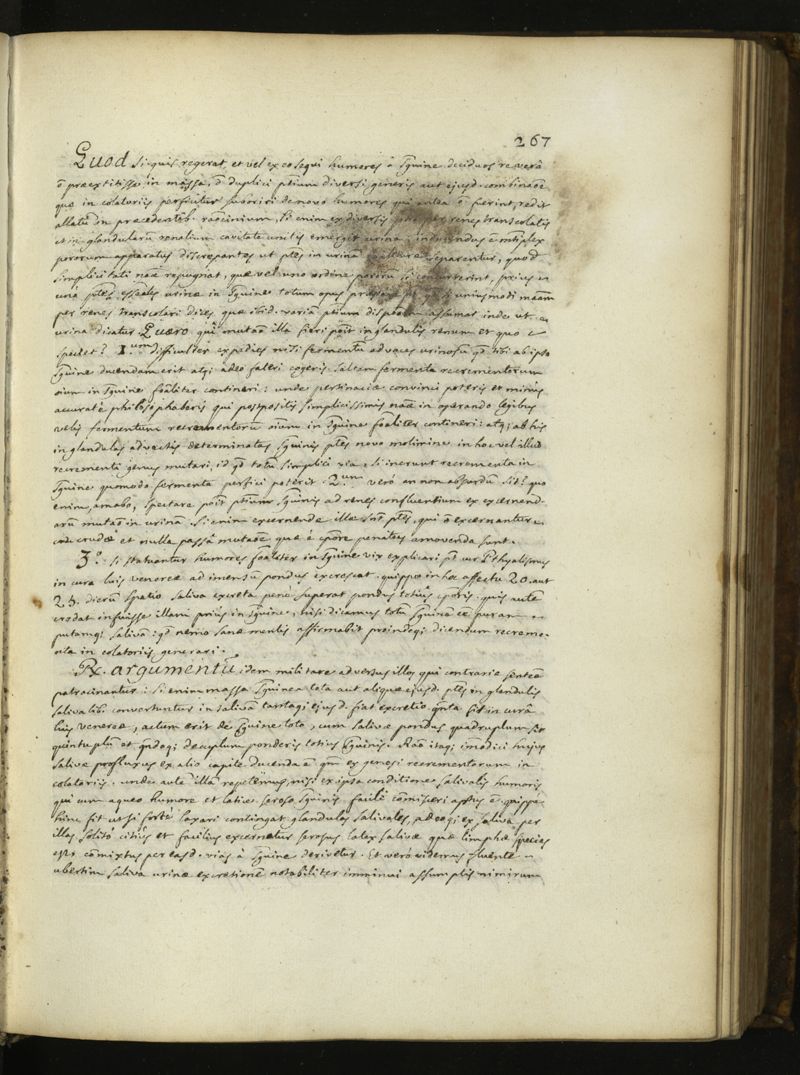 267
Quod si quis regerat, et vel ex eo sequi humores à sguine deciduos reverâ
õ praextitisse in massa, ẽ duplici ptium diversi generis aut ejusd. combinaõe
quæ in colatoriis perficitur suboriri de novo humores qui antea õ fierint, redit
allatũ in præcedentib. raõcinium, si enim ex diversis per renes transcolatis
et in glandularũ renalium cavitate unitis emergit urina
pororum apparatus discrepantes ut ptes in urinã separentur, quod
simplicitati naæ repugnat, quæ vel uno ordine pororũ si
una ptes essealis urinæ in sguine totum opus uniusmodi maãm
per renes transcolari dices, quæ ibid. variã ptium dispõem assumat inde ut
urina dicatur. Quæro qui mutaõe illa fieri põit in glandulis renum et quo
spectet? 1.um difficulter expedies nisi fermentũ advoces urinosũ qd tibi ab ipso
sguine ducendum erit atq; adeo fateri cogeris saltem fermenta recrementorum
oium in sguine foãliter contineri: unde pertinaciæ convinci poteris et minus
accuratè philosophaberis qui postpositis simplicissimis naæ in operando legibus
velis fermentum recrementorũ oium in sguine foaliter contineri: atq; ab his
in glandulas advectis determinatas sguinis ptes novo molimine in hoc vel illud
recrementi genus mutari, id qd totũ simplici via si inerunt recrementa in
sguine quomodo fermenta perfici poterit. 2.um verò an non absurdũ sit? quo
enim, amabo, spectare põit ptium sguinis ad renes confluentium ex excernend
arũ mutaõ in urinã. Si enim excernendæ illæ snt ptes, qui õ excernantur
crudæ et nulla passâ mutaõe quæ à cpore penitus amovenda sunt.
3.º si statuantur humores foaliter in sguine vix explicari pt cur Pthyalismus
in cura luis venereæ ad imensũ pondus excrescat. quippe in hoc affectu 20. aut
25. dierũ spatio saliva excreta penè superat pondus totius cporis: quis autẽ
credat infuisse illam priùs in sguine, nisi dicamus totũ sguinẽ eẽ puram
putamq; salivã: qd nemo sanæ mentis affirmabit proindeq; dicendum recreme-
nta in colatoriis generari.
Rx. argumentũ idem militare adversus illos qui contrariæ senteæ
patrocinantur: si enim massa sguinea tota aut aliquæ ejusd. ptes in glandulis
salivalib. convertuntur in salivã tantaq; ejusd. fiat excretio qnta fit in curâ
luis venereæ, actum erit de sguine toto, cum salivæ pondus quadruplum sit
quintuplũ et qndoq; decuplum ponderis totius sguinis. Raõ itaq; imodici hujus
salivæ profluxus ex alio capite ducenda ẽ qm ex genesi recrementorum in
colatoriis. unde autẽ illã repetemus, nisi ex ipsa conditione salivalis humoris
qui cum aqueo humore et latice seroso sguinis facilè cõmisceri aptus ẽ. quippe
hinc fit ut si fortè laxari contingat glandulas salivales, adeoq; ex salivâ per
illas solitò citiùs et faciliùs excernatur serosus latex salivæ quæ limphæ species
est cõmixtus per easd. vias à sguine derivetur. Et verò videmus fluente
ubertim saliva urinæ excretionẽ notabiliter imminui assumptis nimirum